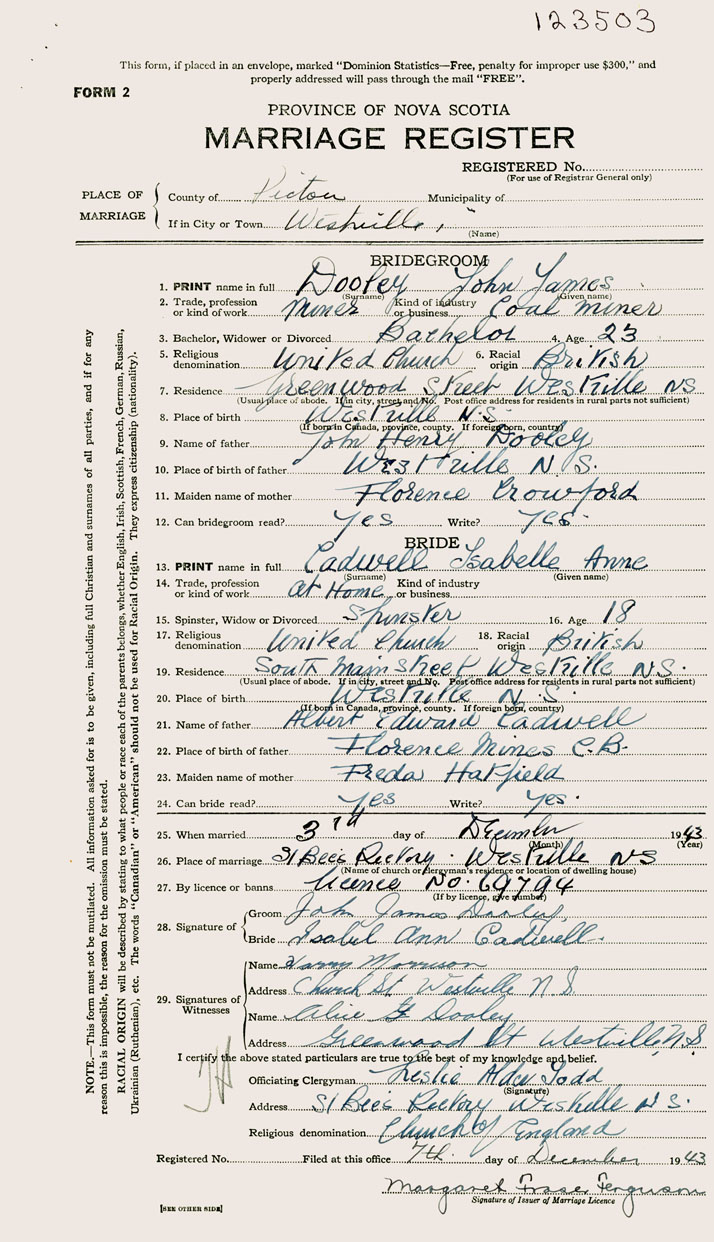 123503
This form, if placed in an envelope, marked "Dominion Statistics—Free, penalty for improper use $300," and
properly addressed will pass through the mail "FREE".
FORM 2
PROVINCE OF NOVA SCOTIA
MARRIAGE REGISTER
REGISTERED No.
(For use of Registrar General only)
PLACE OF MARRIAGE
County of Pictou Municipality of
If in City or Town Westville, "
(Name)
BRIDEGROOM
1. PRINT name in full Dooley John James
(Surname) (Given name)
2. Trade, profession or kind of work Miner Kind of industry or business Coal miner
3. Bachelor, Widower or Divorced Bachelor 4. Age 23
5. Religious denomination United Church 6. Racial origin British
7. Residence Greenwood Street Westville NS
(Usual place of abode. If in city, street and No. Post office address for residents in rural parts not sufficient)
8. Place of birth Westville N.S.
(If born in Canada, province, county. If foreign born, country)
9. Name of father John Henry Dooley
10. Place of birth of father Westville N S.
11. Maiden name of mother Florence Crowford
12. Can bridegroom read? Yes Write? Yes.
BRIDE
13. PRINT name in full Cadwell Isabelle Anne
(Surname) (Given name)
14. Trade, profession or kind of work at Home Kind of industry or business
15. Spinster, Widow or Divorced Spinster 16. Age 18
17. Religious denomination United Church 18. Racial origin British
19. Residence South Main Street Westville N.S.
(Usual place of abode. If in city, street and No. Post office address for residents in rural parts not sufficient)
20. Place of birth Westville N. S.
(If born in Canada, province, county. If foreign born, country)
21. Name of father Albert Edward Cadwell
22. Place of birth of father Florence Mines C.B.
23. Maiden name of mother Freda Hatfield
24. Can bride read? Yes Write? Yes.
25. When married 3rd day of December 1943
(Month) (Year)
26. Place of marriage St Bee's Rectory. Westville NS
(Name of church or clergyman's residence or location of dwelling house)
27. By licence or banns licence No. 69794
(If by licence, give number)
28. Signature of
Groom John James Dooley,
Bride Isabel Ann Cadwell.
29. Signatures of Witnesses
Name Harry Morrison
Address Church St Westville N.S.
Name Alice G Dooley
Address Greenwood St Westville, N.S
I certify the above stated particulars are true to the best of my knowledge and belief.
Officiating Clergyman Leslie Todd
(Signature)
Address St Bee's Rectory Westville N S.
Religious denomination Church of England
Registered No. Filed at this office 7th. day of December 1943
Margaret Fraser Ferguson
Signature of Issuer of Marriage Licence
[SEE OTHER SIDE]
NOTE.—This form must not be mutilated. All information asked for is to be given, including full Christian and surnames of all parties, and if for any
reason this is impossible, the reason for the omission must be stated.
RACIAL ORIGIN will be described by stating to what people or race each of the parents belongs, whether English, Irish, Scottish, French, German, Russian,
Ukrainian (Ruthenian), etc. The words "Canadian" or "American" should not be used for Racial Origin. They express citizenship (nationality).